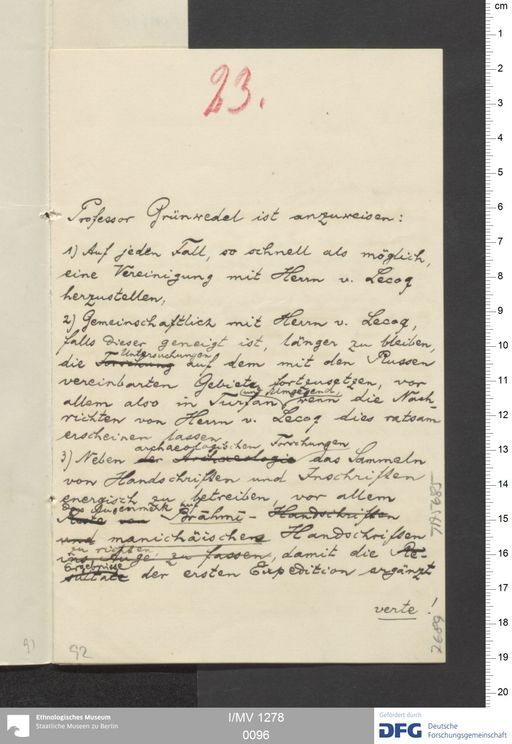 23.
Professor Grünwedel ist anzuweisen:
1) Auf jeden Fall, so schnell als möglich,
eine Vereinigung mit Herrn v. Lecoq
herzustellen,
2) Gemeinschaftlich mit Herrn v. Lecoq,
falls dieser geneigt ist, länger zu bleiben,
Untersuchungen
die Forschung auf dem mit den Russen
vereinbarten Gebiete fortzusetzen, vor
und Umgegend,
allem also in Turfan, wenn die Nach-
richten von Herrn v. Lecoq dies ratsam
erscheinen lassen
archaeologischen Forschungen
3) Neben der Archaeologie das Sammeln
von Handschriften und Inschriften
energisch zu betreiben, vor allem
das Augenmerk auf
Brāhmī - Handschriften
und manichäischen Handschriften
zu richten
ins Auge zu fassen, damit die Re-
Ergebnisse
sultate der ersten Expedition ergänzt
verte!
92
9)
7689
cm
1
2
3
4
5
6
7
8
9
10
11
12
13
14
15
16
17
18
19
20
Ethnologisches Museum
Staatliche Museen zu Berlin
I/MV 1278
0096
Gefördert durch
DFG Deutsche
Forschungsgemeinschaft